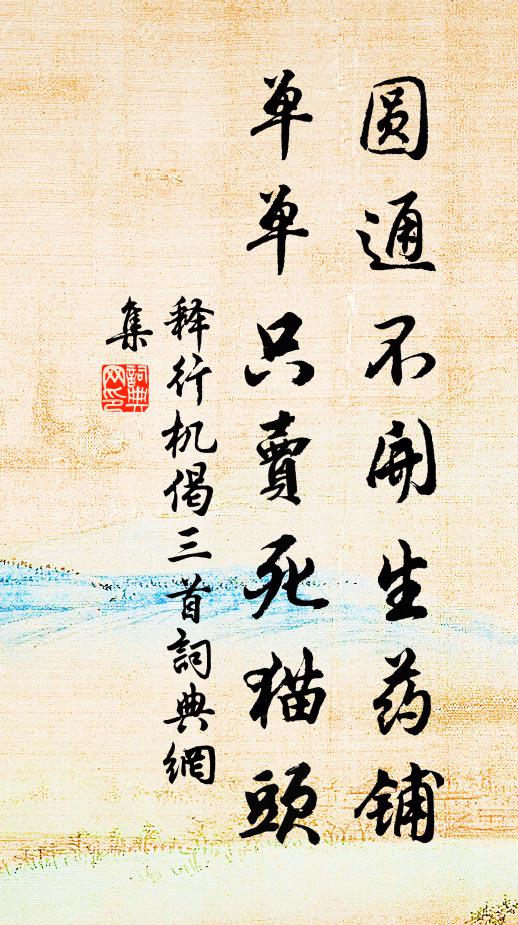 圆通不開生药铺
单单只賣死猫頭
释行机偈三首詞典網
集
詞典
网印